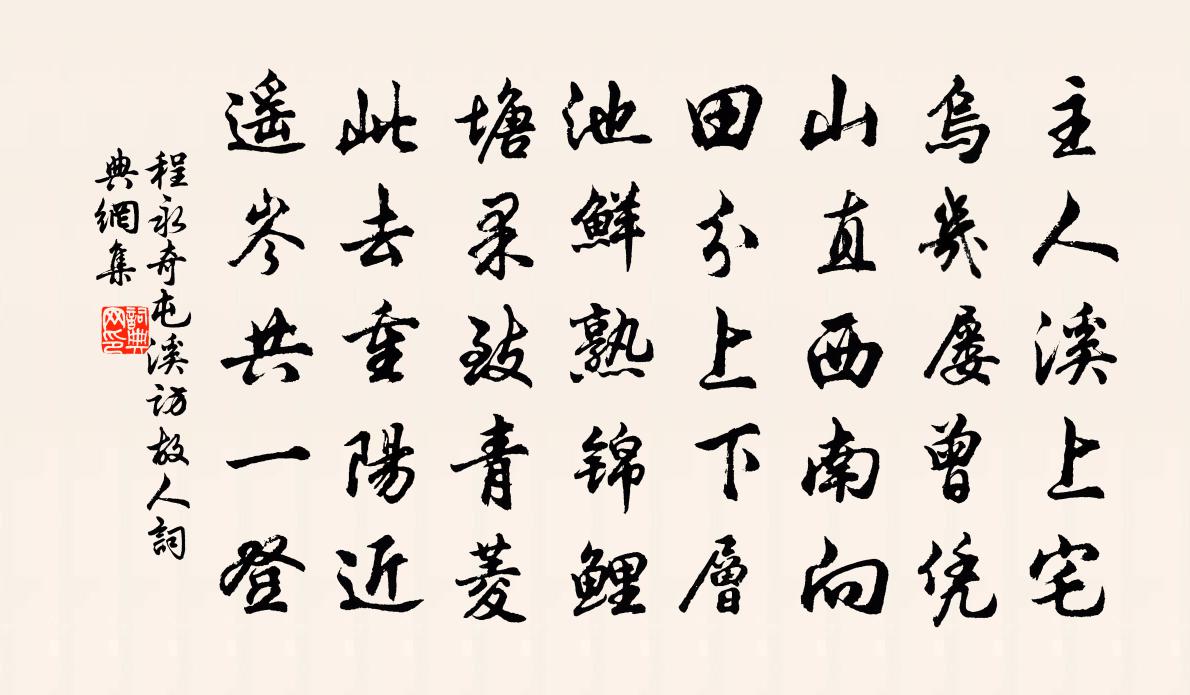 主人溪上宅
烏几屡曾凭
山直西南向
田分上下層
池鮮熟錦鯉
塘果致青菱
此去重陽近
遥岑共一登
程永奇屯溪訪故人詞
典網集
詞典
网印